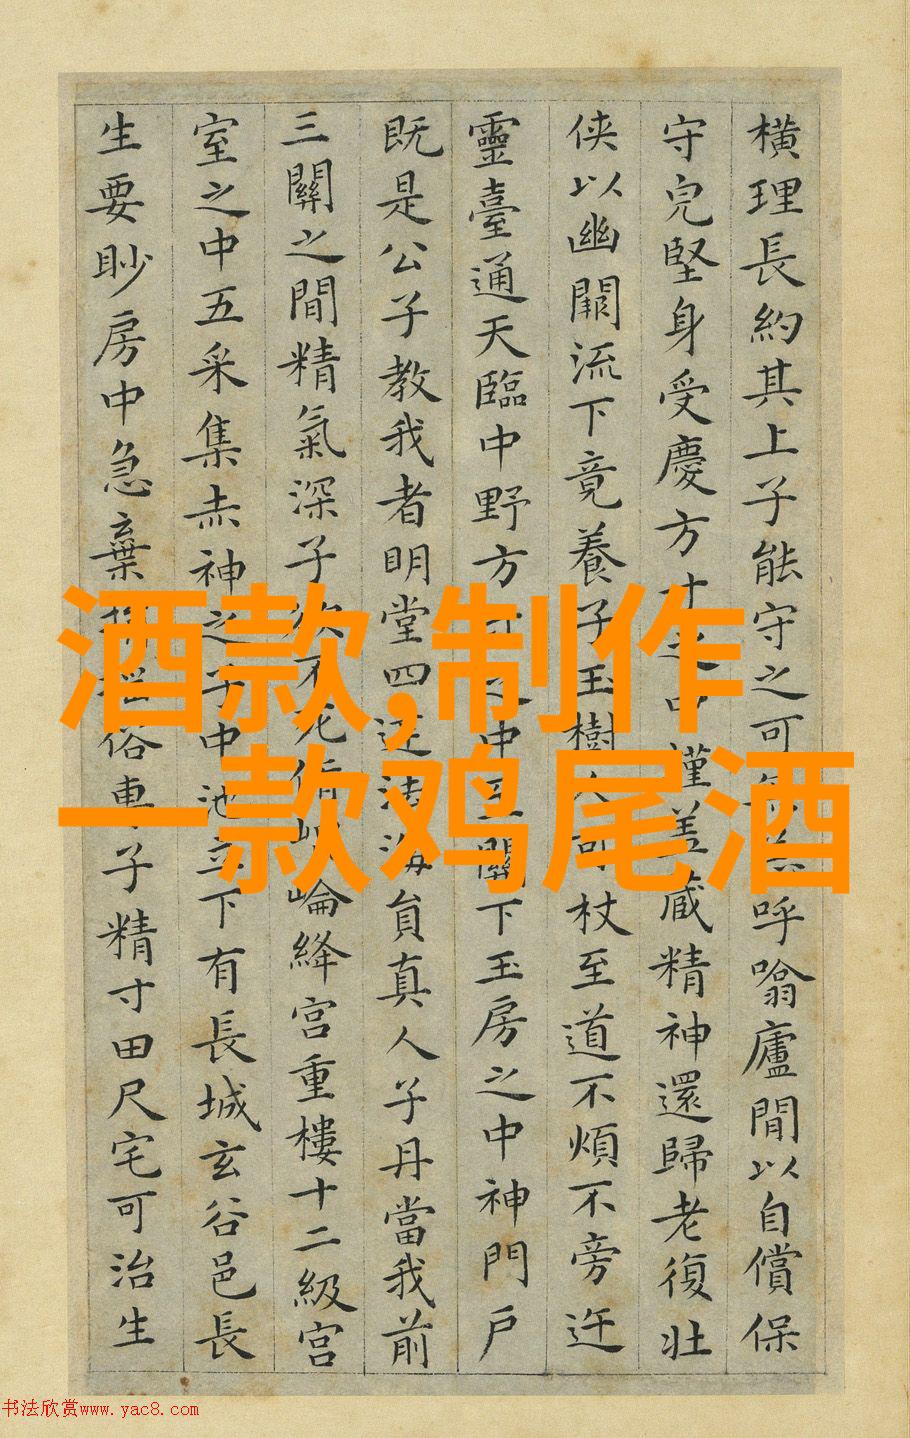 橫理長約其上子能守之可
呼噏廬間以自償保
守皃堅身受慶方寸之中謹蓋藏精神還歸老復壯
俠以幽闕流下竟養子玉樹人可杖至道不煩不旁迕
靈臺通天臨中野方寸之中至關下玉房之中神門戶
既是公子教我者明堂四達法海員真人子丹當我前
三關之間精氣深子欲不死脩崐崘絳宮重樓十二級宮
室之中五采集赤神之子中池立下有長城玄谷邑長
生要眇房中急棄捐俗專子精寸田尺宅可治生
酒款,制作
一款鸡尾酒
书法欣赏www.yac8.com